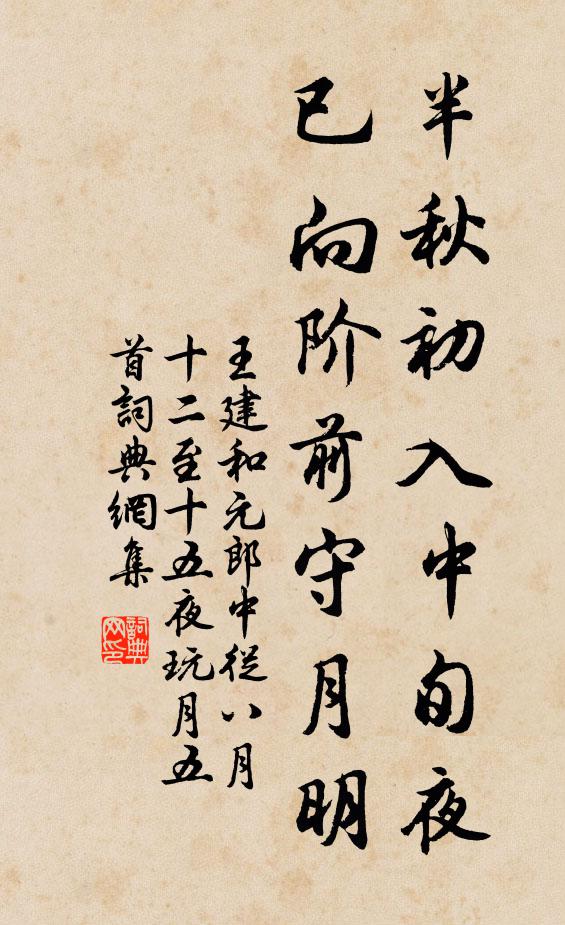 半秋初入中旬夜
已向阶前守月明
王建和元郎中從八月
十二至十五夜玩月五
首詞典網集
詞典
网印